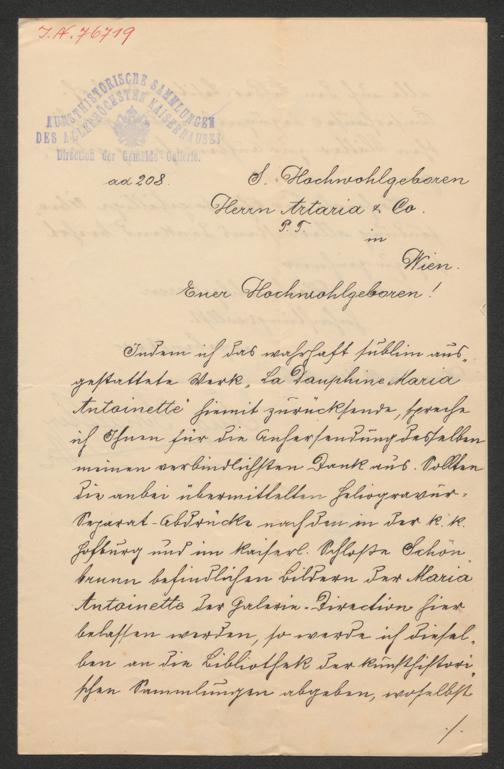 I.N. 76719
KUNSTHISTORISCHE SAMMLUNGEN
DES ALLERHÖCHSTEN KAISERHAUSES
Direction der Gemälde-Gallerie.
ad 208.
S. Hochwohlgeboren
Herrn Artaria & Co.
P. T.
in
Wien.
Euer Hochwohlgeboren!
Indem ich das wahrhaft sublim aus-
gestattete Werk „La Dauphine Maria
Antoinette“ hiemit zurücksende, spreche
ich Ihnen für die Anhersendung desselben
meinen verbindlichsten Dank aus. Sollten
die anbei übermittelten Heliogravür-
Separat-Abdrücke nach den in der k. k.
Hofburg und im kaiserl. Schloße Schön
brunn befindlichen Bildern der Maria
Antoinette der Galerie-Direction hier
belassen werden, so werde ich diesel-
ben an die Bibliothek der kunsthistori-
schen Sammlungen abgeben, woselbst
./.